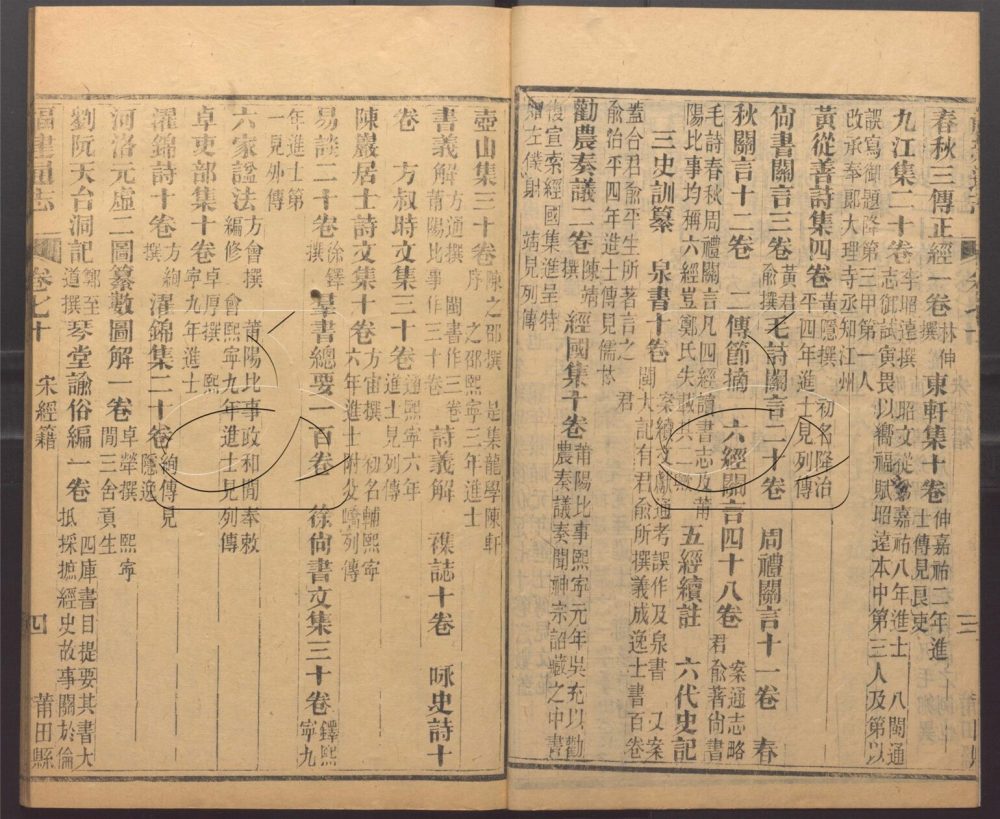 春秋三傳正經一卷 林伸撰 東軒集十卷 伸嘉祐二年進士傳見良吏
九江集二十卷 李昭遠撰 昭文從弟嘉祐八年進士 八閩通志御試寅畏以嚮福賦昭遠本中第三人及第以
誤寫御題降第三甲第一人改承奉郎大理寺丞知江州
黃從善詩集四卷 黃隱撰 初名降治平四年進士見列傳
尙書關言三卷 黃君俞撰 毛詩關言二十卷 周禮關言十一卷 春
秋關言十二卷 二傳節摘 六經關言四十八卷 案通志略君俞著尙書
毛詩春秋周禮關言凡四經讀書志及莆陽比事均稱六經豈鄭氏失載其二與 五經續註 六代史記
三史訓纂 泉書十卷 案續文獻通考誤作及泉書 又案閩大記有君俞所撰義成逸士書百卷
蓋合君俞平生所著言之 君俞治平四年進士傳見儒林
勸農奏議二卷 陳靖撰 經國集十卷 莆陽比事熙寧元年吳充以勸農奏議奏聞神宗詔藏之中書
復宣索經國集進呈特贈士僕射 靖見列傳
三
壺山集三十卷 陳之邵撰 是集龍學陳軒序 之邵熙寧三年進士
書義解 方通撰 閩書作三卷莆陽比事作三十卷 詩義解 襍誌十卷 咏史詩十
卷 方叔時文集三十卷 通熙寧六年進士見列傳
陳巖居士詩文集十卷 方宙撰 初名輔熙寧六年進士附父嶠列傳
易談二十卷 徐鐸撰 羣書總要一百卷 徐尙書文集三十卷 鐸熙寧九
年進士第一見列傳
六家諡法 方會撰 莆陽比事政和間奉敕編修 會熙寧九年進士見列傳
卓吏部集十卷 卓厚撰 熙寧九年進士
濯錦詩十卷 方絢撰 濯錦集二十卷 絢傳見隱逸
河洛元虛二圖纂數圖解一卷 卓犖撰 熙寧間三舍貢生
劉阮天台洞記 鄭至道撰 琴堂諭俗編一卷 四庫書目提要其書大抵採摭經史故事關於倫
福建通志 卷七十 宋經籍 四 莆田縣